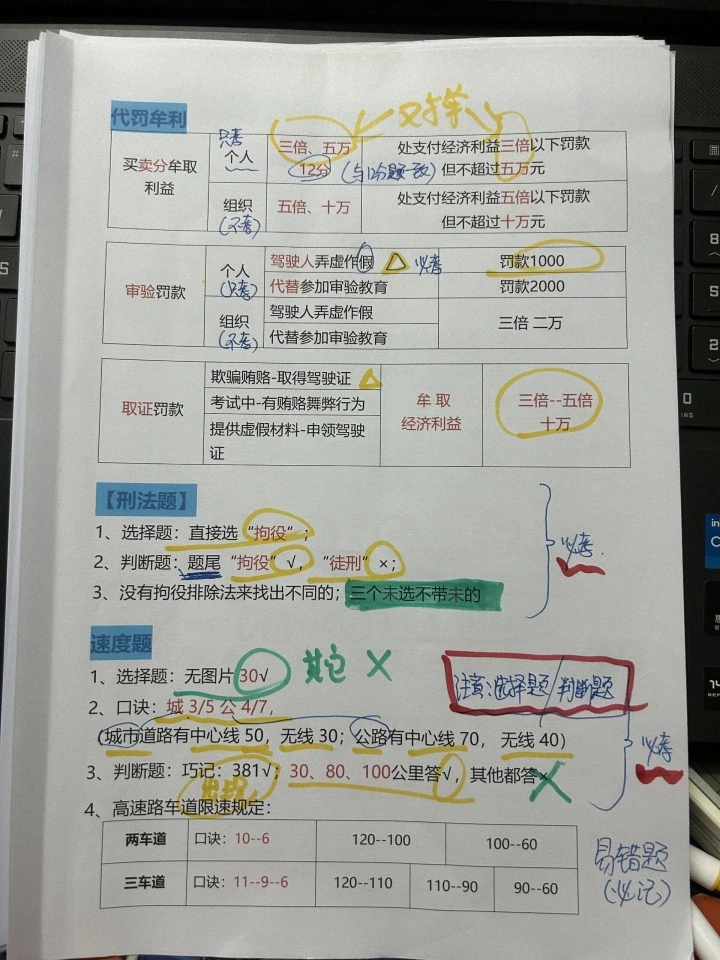 代罚牟利
又挣
买卖分牟取利益
只考
个人
三倍、五万
12分
(与12分题一致)
处支付经济利益三倍以下罚款
但不超过五万元
组织
(不考)
五倍、十万
处支付经济利益五倍以下罚款
但不超过十万元
审验罚款
个人
(只考)
驾驶人弄虚作假
必考
罚款1000
代替参加审验教育
罚款2000
组织
(不考)
驾驶人弄虚作假
代替参加审验教育
三倍 二万
取证罚款
欺骗贿赂-取得驾驶证
考试中-有贿赂舞弊行为
提供虚假材料-申领驾驶
证
牟 取
经济利益
三倍--五倍
十万
【刑法题】
1、选择题：直接选“拘役”；
2、判断题：题尾“拘役”√，“徒刑”×；
3、没有拘役排除法来找出不同的；三个未选不带未的
必考.
速度题
1、选择题：无图片 30√
其它 X
注意:选择题/判断题
2、口诀：城 3/5 公 4/7,
(城市道路有中心线 50，无线 30；公路有中心线 70， 无线 40)
必考
3、判断题：巧记：381√；30、80、100公里答√，其他都答×
4、高速路车道限速规定：
两车道
口诀：10--6
120--100
100--60
三车道
口诀：11--9--6
120--110
110--90
90--60
易错题
(必记)